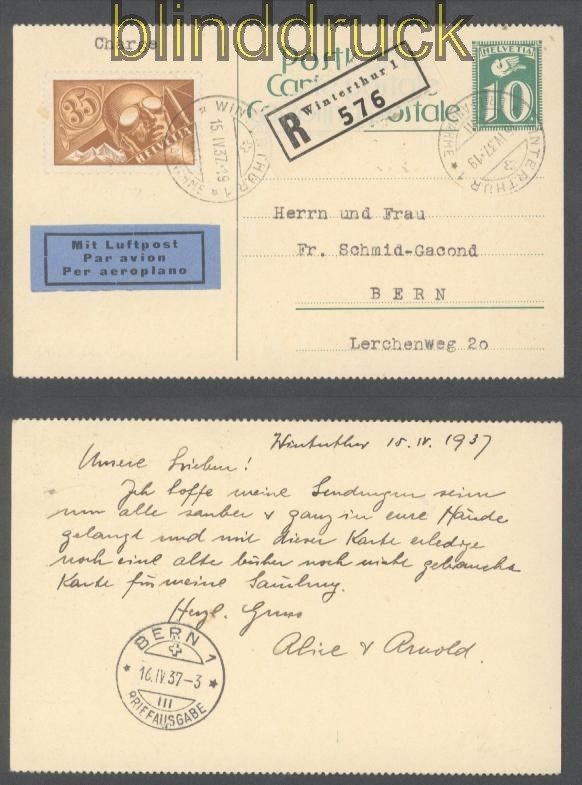 blinddruck
Chargé
Postkarte
Carte postale
Cartolina postale
HELVETIA
10
35
HELVETIA
WINTERTHUR 1
15.IV.37.-19
R Winterthur 1
576
WINTERTHUR 1
IV.37.-19
Mit Luftpost
Par avion
Per aeroplano
Herrn und Frau
Fr. Schmid-Gacond
BERN
Lerchenweg 2o
Winterthur 15. IV. 1937
Unsere Lieben!
Ich hoffe meine Sendungen seien
nun alle sauber & ganz in eure Hände
gelangt und mit dieser Karte erledige
noch eine alte bisher noch nicht gebrauchte
Karte für meine Samlung.
Herzl. Gruss
Alice & Arnold.
BERN 1
16.IV.37-3
III
BRIEFAUSGABE